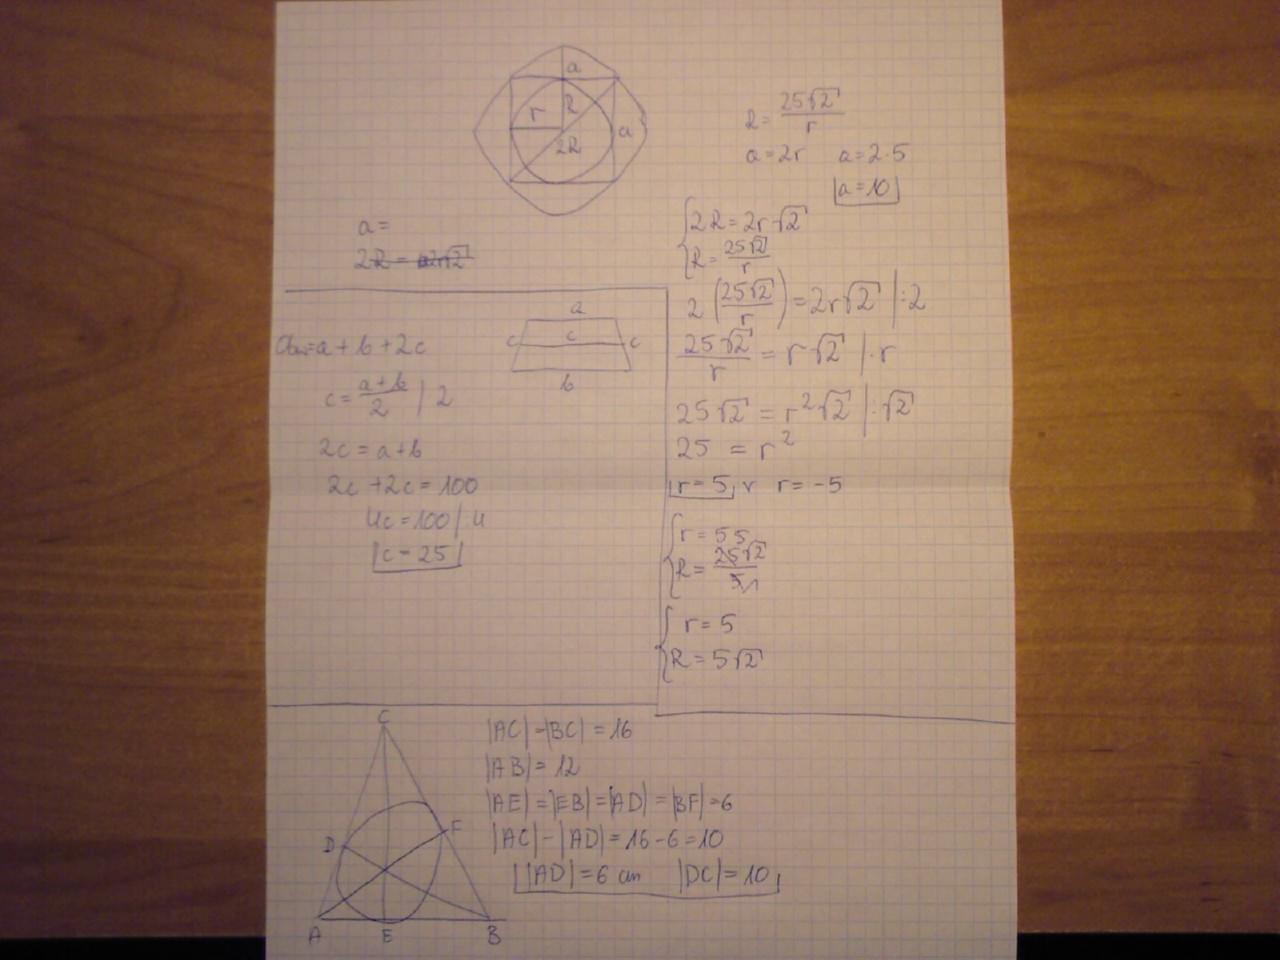 a
r R
a
2R
R = 25√2/r
a = 2r a = 2·5
a = 10
a =
2R =
{2R = 2r√2
R = 25√2/r
2(25√2/r) = 2r√2 |:2
25√2/r = r√2 |·r
25√2 = r²√2 |:√2
25 = r²
r = 5 v r = -5
{r = 5
R = 25√2/5
{r = 5
R = 5√2
a
c c c
b
= a + b + 2c
c = a+b/2 | 2
2c = a+b
2c + 2c = 100
4c = 100 |:4
c = 25
C
D F
A E B
|AC| = |BC| = 16
|AB| = 12
|AE| = |EB| = |AD| = |BF| = 6
|AC| - |AD| = 16 - 6 = 10
|AD| = 6 cm |DC| = 10